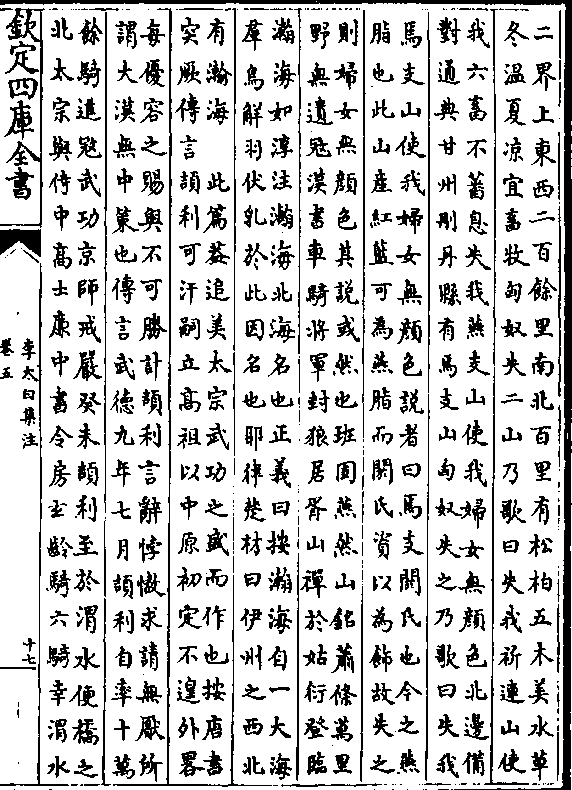 二界上東西二百餘里南北百里有松柏五木美水草
冬溫夏凉宜畜牧匈奴失二山乃歌曰失我祈連山使
我六畜不蕃息失我燕支山使我婦女無顔色北邊備
對通典甘州刪丹縣有焉支山匈奴失之乃歌曰失我
焉支山使我婦女無顔色説者曰焉支閼氏也今之燕
脂也此山産紅藍可為燕脂而閼氏資以為飾故失之
則婦女無顔色其説或然也班固燕然山銘蕭條萬里
野無遺冦漢書車騎將軍封狼居胥山禪於姑衍登臨
瀚海如淳注瀚海北海名也正義曰按瀚海自一大海
羣鳥解羽伏乳於此因名也耶律楚材曰伊州之西北
有瀚海　此篇葢追美太宗武功之盛而作也按唐書
突厥傳言頡利可汗嗣立高祖以中原初定不遑外畧
每優容之賜與不可勝計頡利言辭悖慠求請無厭所
謂大漠無中策也傳言武德九年七月頡利自率十萬
餘騎進冦武功京師戒嚴癸未頡利至於渭水便橋之
北太宗與侍中高士廉中書令房玄齡騎六騎幸渭水
欽定四庫全書
李太白集注
卷五
十七